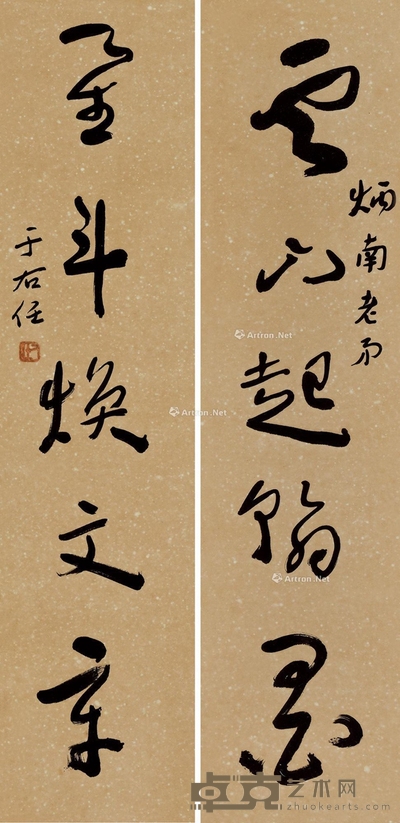 云山起翰墨
炳南老弟
星斗焕文章
于右任
Artron.Net
Artron.Net
Artron.Net
卓克艺术网
zhuokearts.com